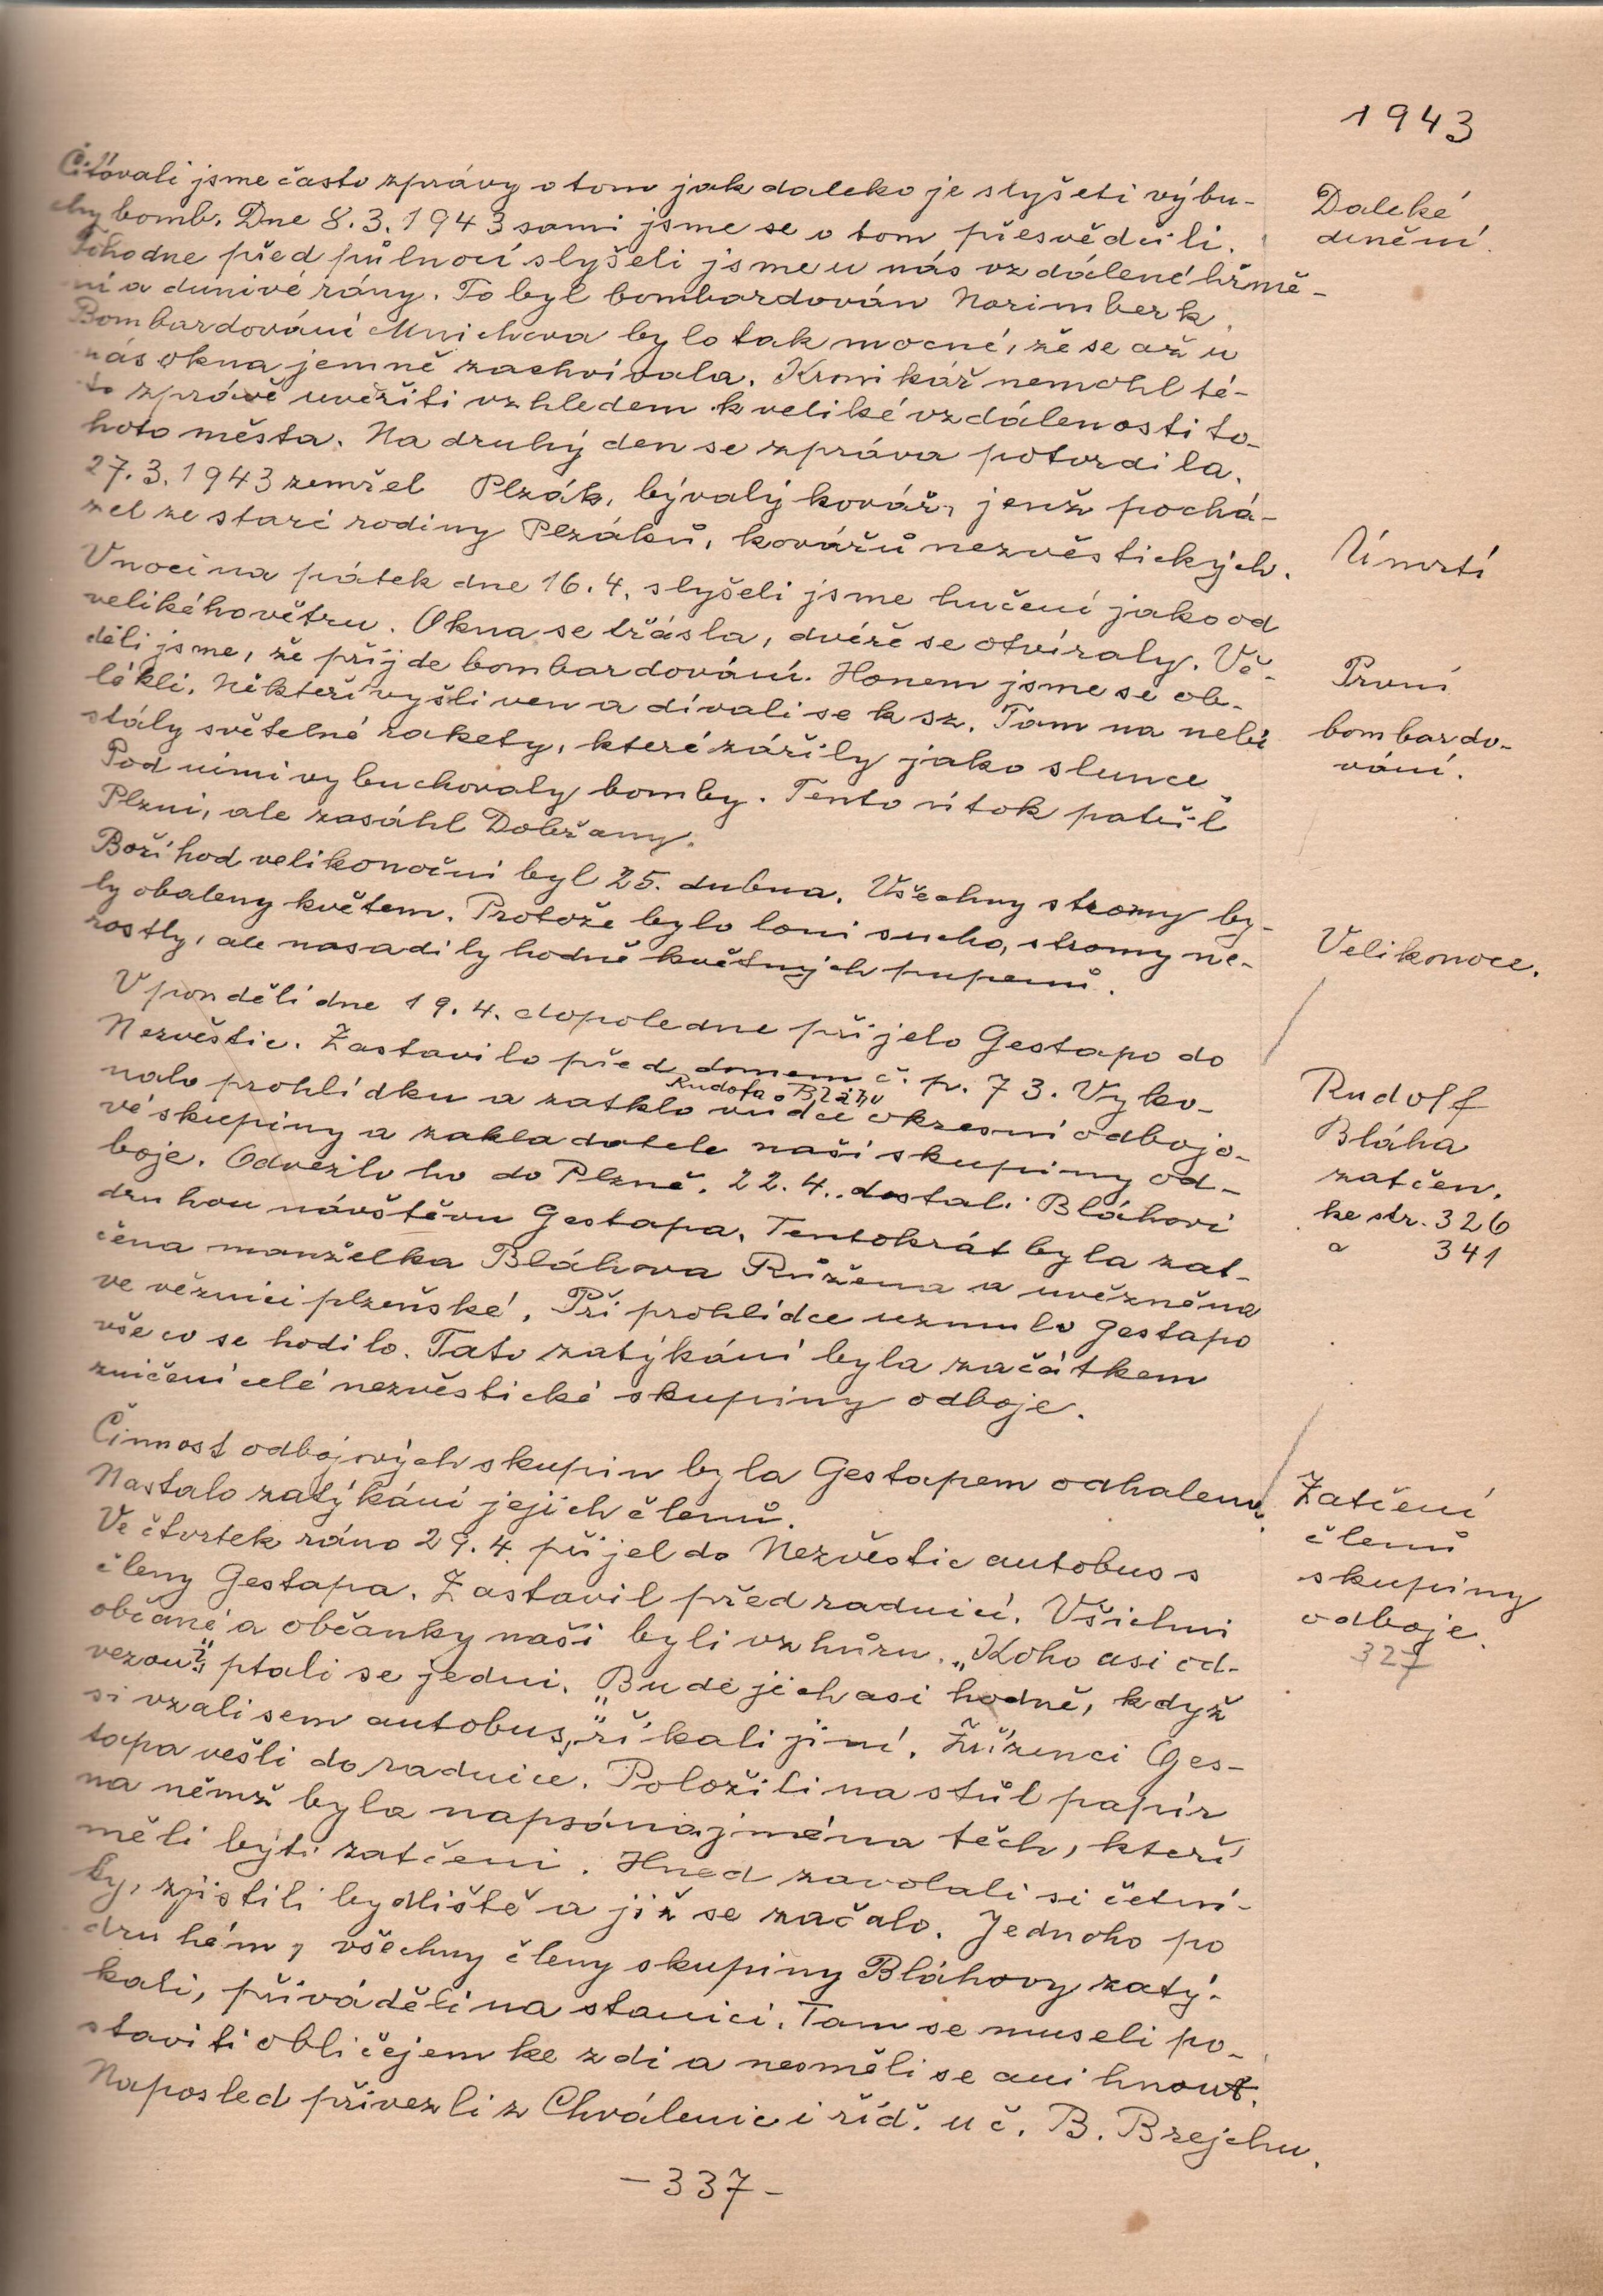 1943
Čítávali jsme často zprávy o tom jak daleko je slyšeti výbu-
chy bomb. Dne 8.3.1943 sami jsme se o tom přesvědčili.
Tohodne před půlnocí slyšeli jsme u nás vzdálené hřmě-
ní a dunivé rány. To byl bombardován Norimberk.
Bombardování Mnichova bylo tak mocné, že se až u
nás okna jemně zachvívala. Kronikář nemohl té-
to zprávě uvěřiti vzhledem k veliké vzdálenosti to-
hoto města. Na druhý den se zpráva potvrdila.
Daleké
dunění.
27.3.1943 zemřel Plzák, bývalý kovář, jenž pochá-
zel ze staré rodiny Plzáků, kovářů nezvěstických.
Úmrtí
V noci na pátek dne 16.4. slyšeli jsme hučení jako od
velikého větru. Okna se třásla, dvéře se otvíraly. Vě-
děli jsme, že příjde bombardování. Honem jsme se ob-
lékli. Někteří vyšli ven a dívali se k sz. Tam na nebi
stály světelné rakety, které zářily jako slunce
Pod nimi vybuchovaly bomby. Tento útok patřil
Plzni, ale zasáhl Dobřany.
První
bombardo-
vání.
Boží hod velikonoční byl 25. dubna. Všechny stromy by-
ly obaleny květem. Protože bylo loni sucho, stromy ne-
rostly, ale nasadily hodně květných pupenů.
Velikonoce.
V pondělí dne 19.4. dopoledne přijelo Gestapo do
Nezvěstic. Zastavilo před domem č. p. 73. Vyko-
nalo prohlídku a zatklo vůdce okresní odbojo-
Rudofa Bláhu
vé skupiny a zakladatele naší skupiny od-
boje. Odvezlo ho do Plzně. 22.4. dostali Bláhovi
druhou návštěvu Gestapa. Tentokrát byla zat-
čena manželka Bláhova Růžena a uvězněna
ve věznici plzeňské. Při prohlídce uzmulo Gestapo
vše co se hodilo. Tato zatýkání byla začátkem
zničení celé nezvěstické skupiny odboje.
Rudolf
Bláha
zatčen.
ke str. 326
a 341
Činnost odbojových skupin byla Gestapem odhalena.
Nastalo zatýkání jejich členů.
Ve čtvrtek ráno 29.4. přijel do Nezvěstic autobus s
členy Gestapa. Zastavil před radnicí. Všichni
občané a občanky naši byli vzhůru. „Koho asi od-
vezou?" ptali se jedni. „Bude jich asi hodně, když
si vzali sem autobus," říkali jiní. Zřízenci Ges-
tapa vešli do radnice. Položili na stůl papír
na němž byla napsána jména těch, kteří
měli býti zatčeni. Hned zavolali si četní-
ky, zjistili bydliště a již se začalo. Jednoho po
druhém, všechny členy skupiny Bláhovy zatý-
kali, přiváděli na stanici. Tam se museli po-
staviti obličejem ke zdi a nesměli se ani hnout.
Naposled přivezli z Chválenic i říd. uč. B. Brejchu.
Zatčení
členů
skupiny
odboje.
327
-337-